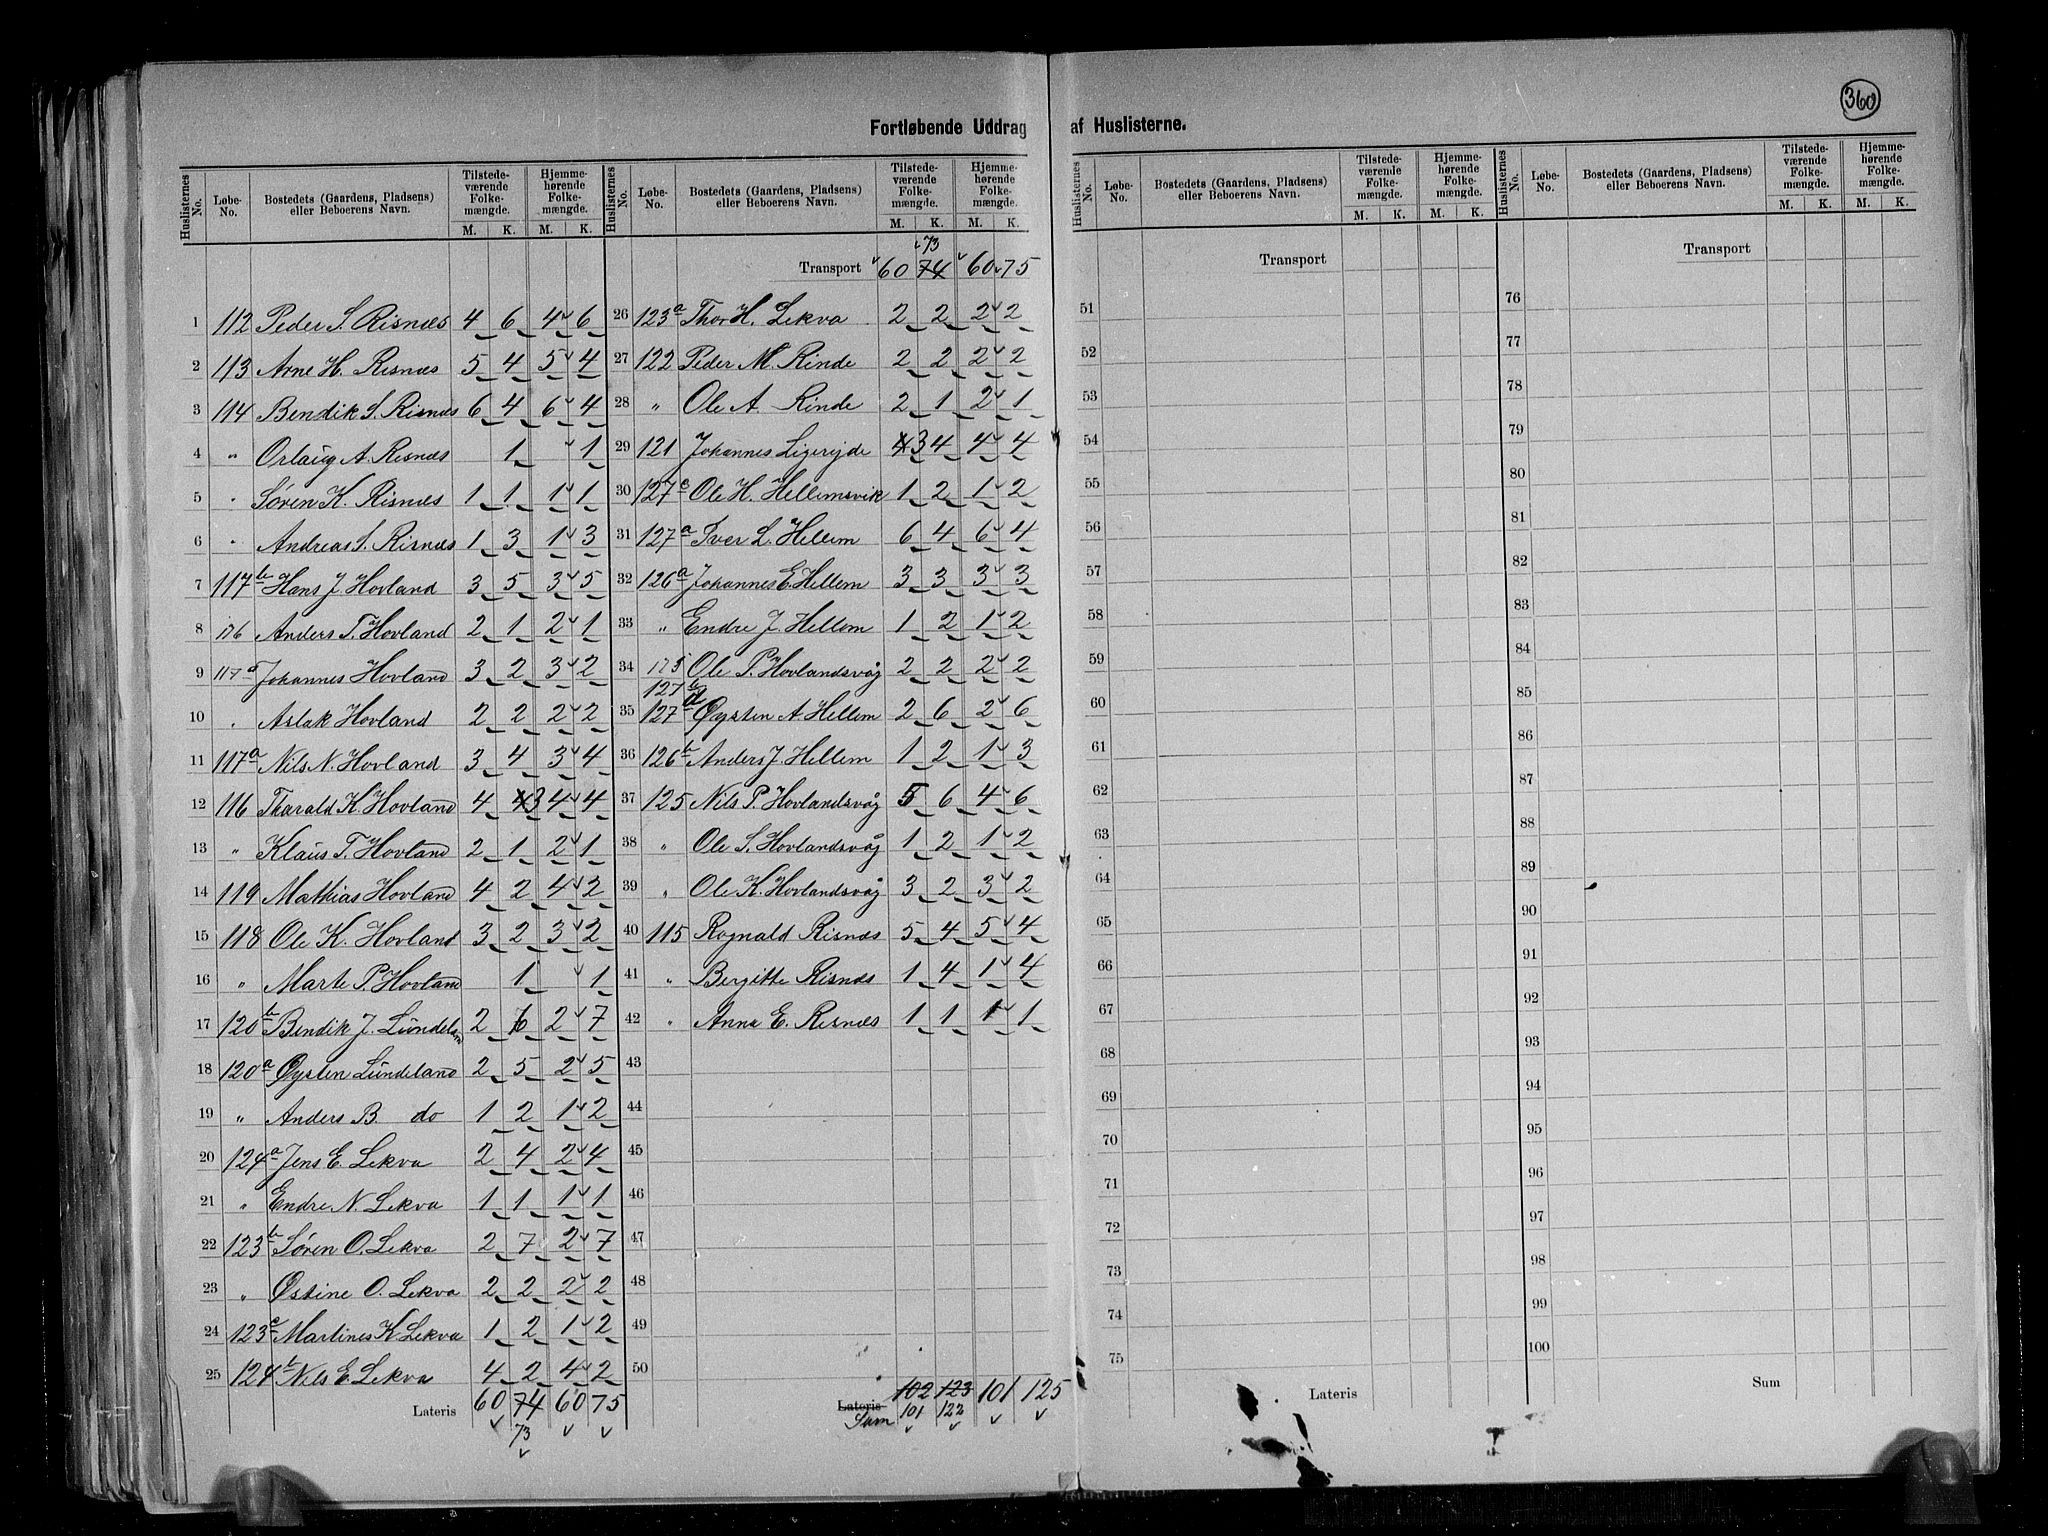 360
Fortløbende Uddrag af Huslisterne.
Huslisternes No. | Løbe-No. | Bostedets (Gaardens, Pladsens) eller Beboerens Navn. | Tilstedeværende Folkemængde. M. K. | Hjemmehørende Folkemængde. M. K.
1 112 Peder S. Risnæs 4 6 4 6
2 113 Arne H. Risnæs 5 4 5 4
3 114 Bendik S. Risnæs 6 4 6 4
4 " Orlaug A. Risnæs 1 1
5 " Søren K. Risnæs 1 1 1 1
6 " Andreas S. Risnæs 1 3 1 3
7 117b Hans J. Hovland 3 5 3 5
8 176 Anders T. Hovland 2 1 2 1
9 117 Johannes Hovland 3 2 3 2
10 " Aslak Hovland 2 2 2 2
11 117a Nils N. Hovland 3 4 3 4
12 116 Tharald K. Hovland 4 4 3 4 4
13 " Klaus T. Hovland 2 1 2 1
14 119 Mathias Hovland 4 2 4 2
15 118 Ole K. Hovland 3 2 3 2
16 " Marte P. Hovland 1 1
17 120b Bendik J. Lundeland 2 6 2 7
18 120a Øysten Lundeland 2 5 2 5
19 " Anders B. do 1 2 1 2
20 124a Jens E. Lekva 2 4 2 4
21 " Endre N. Lekva 1 1 1 1
22 123b Søren O. Lekva 2 7 2 7
23 " Østine O. Lekva 2 2 2 2
24 123c Martines K. Lekva 1 2 1 2
25 124b Nils E. Lekva 4 2 4 2
Lateris 60 74 60 75
73
Huslisternes No. | Løbe-No. | Bostedets (Gaardens, Pladsens) eller Beboerens Navn. | Tilstedeværende Folkemængde. M. K. | Hjemmehørende Folkemængde. M. K.
73
Transport 60 74 60 75
26 123a Thor H. Lekva 2 2 2 2
27 122 Peder M. Rinde 2 2 2 2
28 " Ole A. Rinde 2 1 2 1
29 121 Johannes Ligerejde 4 3 4 4 4
30 127c Ole H. Hellemsvik 1 2 1 2
31 127a Iver L. Hellem 6 4 6 4
32 126a Johannes E. Hellem 3 3 3 3
33 " Endre J. Hellem 1 2 1 2
34 175 Ole P. Hovlandsvåg 2 2 2 2
127b
35 127d Øysten A. Hellem 2 6 2 6
36 126b Anders J. Hellem 1 2 1 3
37 125 Nils P. Hovlandsvåg 5 6 4 6
38 " Ole S. Hovlandsvåg 1 2 1 2
39 " Ole K. Hovlandsvåg 3 2 3 2
40 115 Rognald Risnæs 5 4 5 4
41 " Bergitte Risnæs 1 4 1 4
42 " Anna E. Risnæs 1 1 1 1
43
44
45
46
47
48
49
50
Lateris 102 123 101 125
Sum 101 122
Huslisternes No. | Løbe-No. | Bostedets (Gaardens, Pladsens) eller Beboerens Navn. | Tilstedeværende Folkemængde. M. K. | Hjemmehørende Folkemængde. M. K.
Transport
51
52
53
54
55
56
57
58
59
60
61
62
63
64
65
66
67
68
69
70
71
72
73
74
75
Lateris
Huslisternes No. | Løbe-No. | Bostedets (Gaardens, Pladsens) eller Beboerens Navn. | Tilstedeværende Folkemængde. M. K. | Hjemmehørende Folkemængde. M. K.
Transport
76
77
78
79
80
81
82
83
84
85
86
87
88
89
90
91
92
93
94
95
96
97
98
99
100
Sum